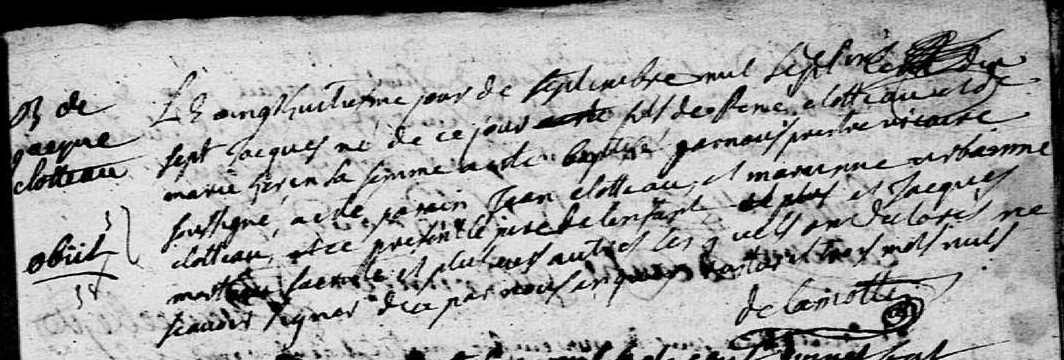 B. de
jacque
clotteau
obiit
Le vingthuitiesme jour de septembre mil sept cent dix
sept Jacques né de ce jour fils de Rene clotteau et de
marie sa femme a este baptisé par nous prestre vicaire
soussigné, a esté parain Jean clotteau, et maraine urbainne
clotteau, et ce present le pere de l'enfant et Jacques
et plusieurs autres lesquels ont declarés ne
scavoir signer de ce par nous enquis trois mots nuls
de lamotte